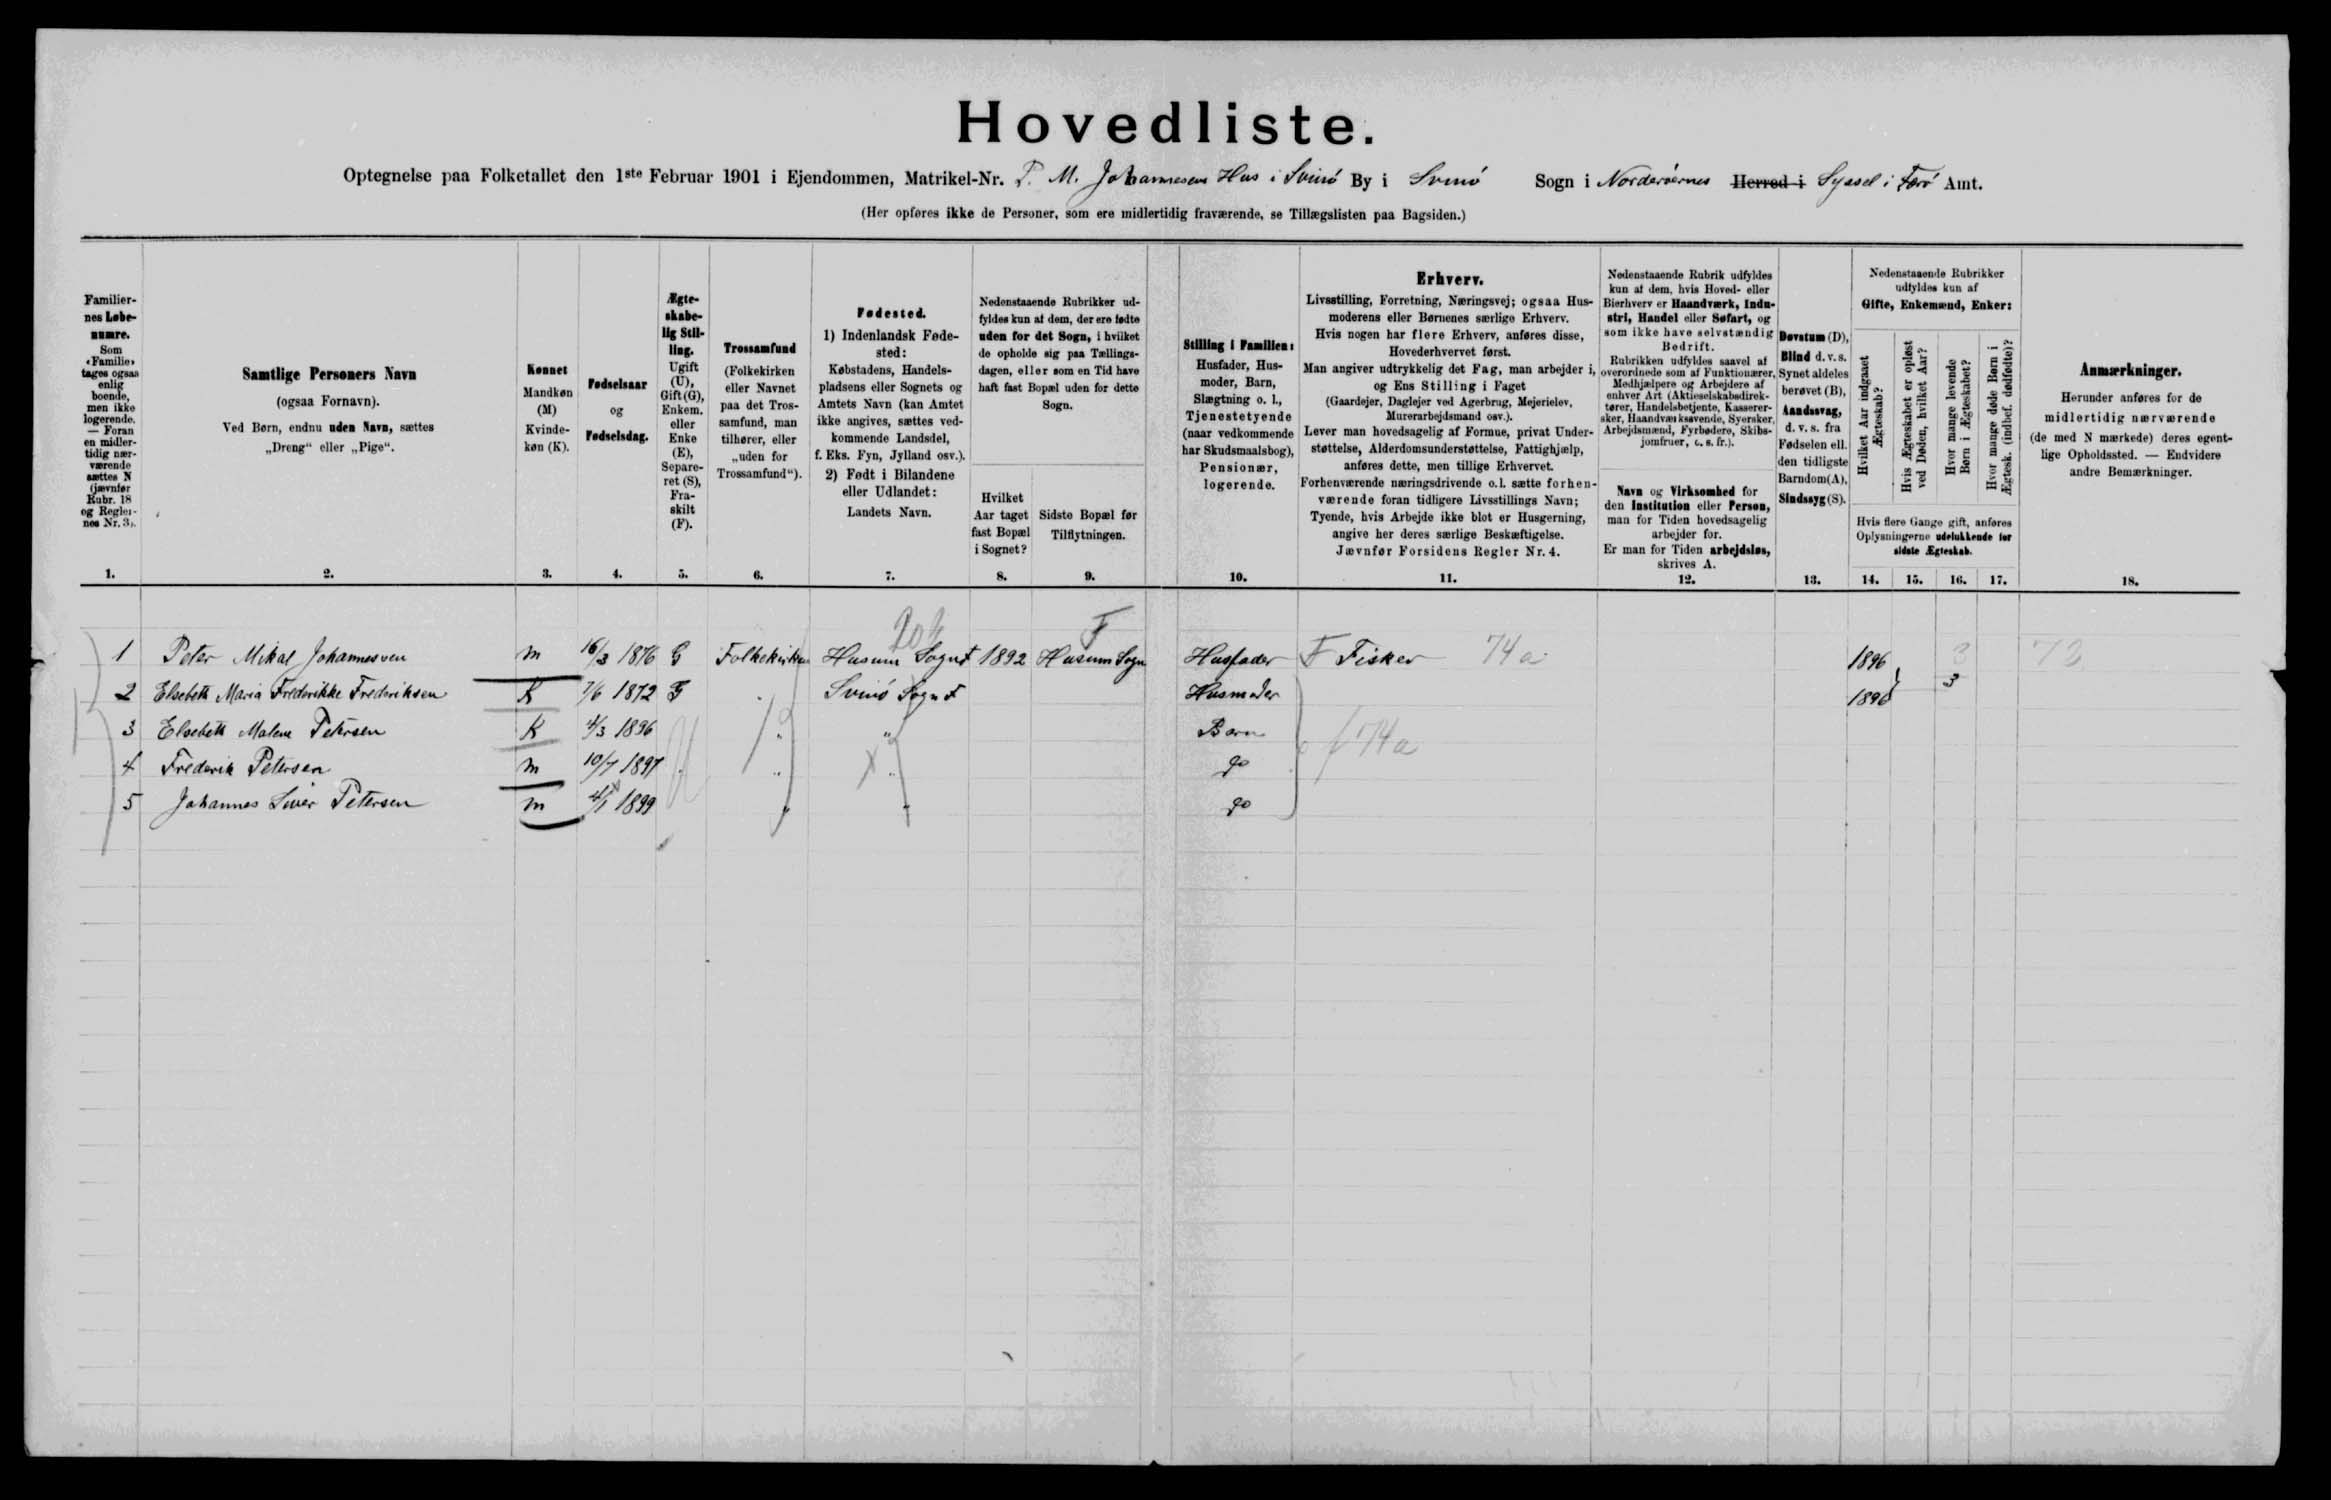 Hovedliste.
Optegnelse paa Folketallet den 1ste Februar 1901 i Ejendommen, Matrikel-Nr. P. M. Johannesens Hus i Svinö By i Svinö Sogn i Norderöernes Herred i Syssel i Færö Amt.
(Her opføres ikke de Personer, som ere midlertidig fraværende, se Tillægslisten paa Bagsiden.)
Familier-
nes Løbe-
numre.
Som
«Familie»
tages ogsaa
enlig
boende,
men ikke
logerende.
— Foran
en midler-
tidig nær-
værende
sættes N
(jævnfør
Rubr. 18
og Regler-
nes Nr. 3).
1.
Samtlige Personers Navn
(ogsaa Fornavn).
Ved Børn, endnu uden Navn, sættes
„Dreng“ eller „Pige“.
2.
Kønnet
Mandkøn
(M)
Kvinde-
køn (K).
3.
Fødselsaar
og
Fødselsdag.
4.
Ægte-
skabe-
lig Stil-
ling.
Ugift
(U),
Gift (G),
Enkem.
eller
Enke
(E),
Separe-
ret (S),
Fra-
skilt
(F).
5.
Trossamfund
(Folkekirken
eller Navnet
paa det Tros-
samfund, man
tilhører, eller
„uden for
Trossamfund“).
6.
Fødested.
1) Indenlandsk Føde-
sted:
Købstadens, Handels-
pladsens eller Sognets og
Amtets Navn (kan Amtet
ikke angives, sættes ved-
kommende Landsdel,
f. Eks. Fyn, Jylland osv.).
2) Født i Bilandene
eller Udlandet:
Landets Navn.
7.
Nedenstaaende Rubrikker ud-
fyldes kun af dem, der ere fødte
uden for det Sogn, i hvilket
de opholde sig paa Tællings-
dagen, eller som en Tid have
haft fast Bopæl uden for dette
Sogn.
Hvilket
Aar taget
fast Bopæl
i Sognet?
8.
Sidste Bopæl før
Tilflytningen.
9.
Stilling i Familien:
Husfader, Hus-
moder, Barn,
Slægtning o. l.,
Tjenestetyende
(naar vedkommende
har Skudsmaalsbog),
Pensionær,
logerende.
10.
Erhverv.
Livsstilling, Forretning, Næringsvej; ogsaa Hus-
moderens eller Børnenes særlige Erhverv.
Hvis nogen har flere Erhverv, anføres disse,
Hovederhvervet først.
Man angiver udtrykkelig det Fag, man arbejder i,
og Ens Stilling i Faget
(Gaardejer, Daglejer ved Agerbrug, Mejerielev,
Murerarbejdsmand osv.).
Lever man hovedsagelig af Formue, privat Under-
støttelse, Alderdomsunderstøttelse, Fattighjælp,
anføres dette, men tillige Erhvervet.
Forhenværende næringsdrivende o.l. sætte forhen-
værende foran tidligere Livsstillings Navn;
Tyende, hvis Arbejde ikke blot er Husgerning,
angive her deres særlige Beskæftigelse.
Jævnfør Forsidens Regler Nr. 4.
11.
Nedenstaaende Rubrik udfyldes
kun af dem, hvis Hoved- eller
Bierhverv er Haandværk, Indu-
stri, Handel eller Søfart, og
som ikke have selvstændig
Bedrift.
Rubrikken udfyldes saavel af
overordnede som af Funktionærer,
Medhjælpere og Arbejdere af
enhver Art (Aktieselskabsdirek-
tører, Handelsbetjente, Kasserer-
sker, Haandværkssvende, Syersker,
Arbejdsmænd, Fyrbødere, Skibs-
jomfruer, o. s. fr.).
Navn og Virksomhed for
den Institution eller Person,
man for Tiden hovedsagelig
arbejder for.
Er man for Tiden arbejdsløs,
skrives A.
12.
Døvstum (D),
Blind d. v. s.
Synet aldeles
berøvet (B),
Aandssvag,
d. v. s. fra
Fødselen ell.
den tidligste
Barndom(A),
Sindssyg (S).
13.
Nedenstaaende Rubrikker
udfyldes kun af
Gifte, Enkemænd, Enker:
Hvilket Aar indgaaet
Ægteskab?
Hvis Ægteskabet er opløst
ved Døden, hvilket Aar?
Hvor mange levende
Børn i Ægteskabet?
Hvor mange døde Børn i
Ægtesk. (indbef. dødfødte)?
Hvis flere Gange gift, anføres
Oplysningerne udelukkende for
sidste Ægteskab.
14. 15. 16. 17.
Anmærkninger.
Herunder anføres for de
midlertidig nærværende
(de med N mærkede) deres egent-
lige Opholdssted. — Endvidere
andre Bemærkninger.
18.
F
1 Peter Mikal Johannessen m 16/3 1876 G Folkekirken Husum Sogn F 1892 Husum Sogn Husfader F Fisker 74a 1896 3 73
2 Elsebeth Maria Frederikke Frederiksen K 7/6 1872 G " Svinö Sogn F Husmoder 1896 3
3 Elsebeth Malene Petersen K 4/3 1896 " " Barn f 74a
4 Frederik Petersen m 10/7 1897 " " do
5 Johannes Siver Petersen m 4/1 1899 " " do